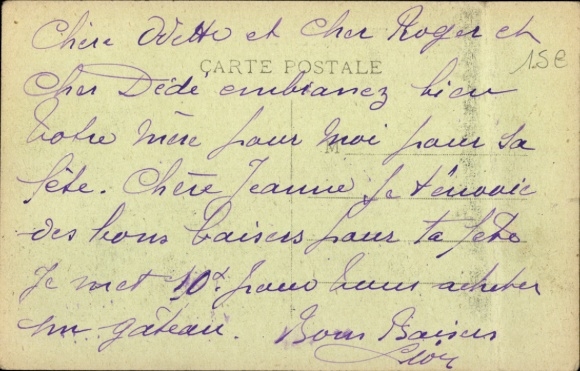 Chère Odette et Cher Roger et
15e
CARTE POSTALE
Cher Dédé embrassez bien
votre mère pour moi pour sa
M
fête. Chère Jeanne je t'envoie
des bons baisers pour ta fête
Je met 10f. pour vous acheter
un gâteau. Bons Baisers